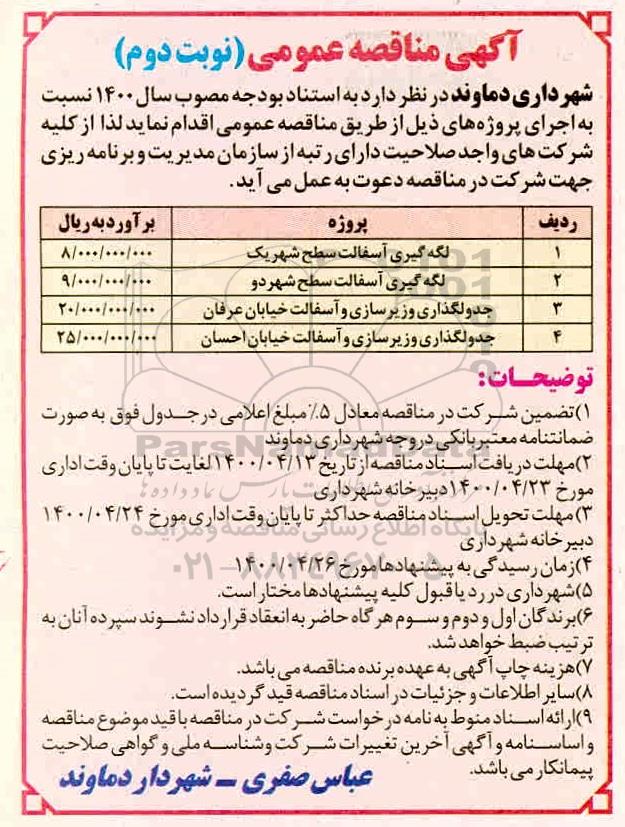 آگهی مناقصه عمومی (نوبت دوم)
شهرداری دماوند در نظر دارد به استناد بودجه مصوب سال ۱۴۰۰ نسبت
به اجرای پروژه‌های ذیل از طریق مناقصه عمومی اقدام نماید لذا از کلیه
شرکت‌های واجد صلاحیت دارای رتبه از سازمان مدیریت و برنامه ریزی
جهت شرکت در مناقصه دعوت به عمل می آید.
ردیف پروژه برآورد به ریال
۱ لگه گیری آسفالت سطح شهر یک ۸/۰۰۰/۰۰۰/۰۰۰
۲ لگه گیری آسفالت سطح شهر دو ۹/۰۰۰/۰۰۰/۰۰۰
۳ جدولگذاری و زیرسازی و آسفالت خیابان عرفان ۲۰/۰۰۰/۰۰۰/۰۰۰
۴ جدولگذاری و زیرسازی و آسفالت خیابان احسان ۲۵/۰۰۰/۰۰۰/۰۰۰
توضیحات:
۱)تضمین شرکت در مناقصه معادل ۵٪ مبلغ اعلامی در جدول فوق به صورت
ضمانتنامه معتبر بانکی در وجه شهرداری دماوند
۲)مهلت دریافت اسناد مناقصه از تاریخ ۱۴۰۰/۰۴/۱۳ لغایت تا پایان وقت اداری
مورخ ۱۴۰۰/۰۴/۲۳ دبیرخانه شهرداری
۳)مهلت تحویل اسناد مناقصه حداکثر تا پایان وقت اداری مورخ ۱۴۰۰/۰۴/۲۴
دبیرخانه شهرداری
۴)زمان رسیدگی به پیشنهادها مورخ ۱۴۰۰/۰۴/۲۶
۵)شهرداری در رد یا قبول کلیه پیشنهادها مختار است.
۶)برندگان اول و دوم و سوم هرگاه حاضر به انعقاد قرارداد نشوند سپرده آنان به
ترتیب ضبط خواهد شد.
۷)هزینه چاپ آگهی به عهده برنده مناقصه می باشد.
۸)سایر اطلاعات و جزئیات در اسناد مناقصه قید گردیده است.
۹)ارائه اسناد منوط به نامه درخواست شرکت در مناقصه با قید موضوع مناقصه
و اساسنامه و آگهی آخرین تغییرات شرکت و شناسه ملی و گواهی صلاحیت
پیمانکار می باشد.
عباس صفری - شهردار دماوند
ParsNamadData
پایگاه اطلاع رسانی مناقصه و مزایده